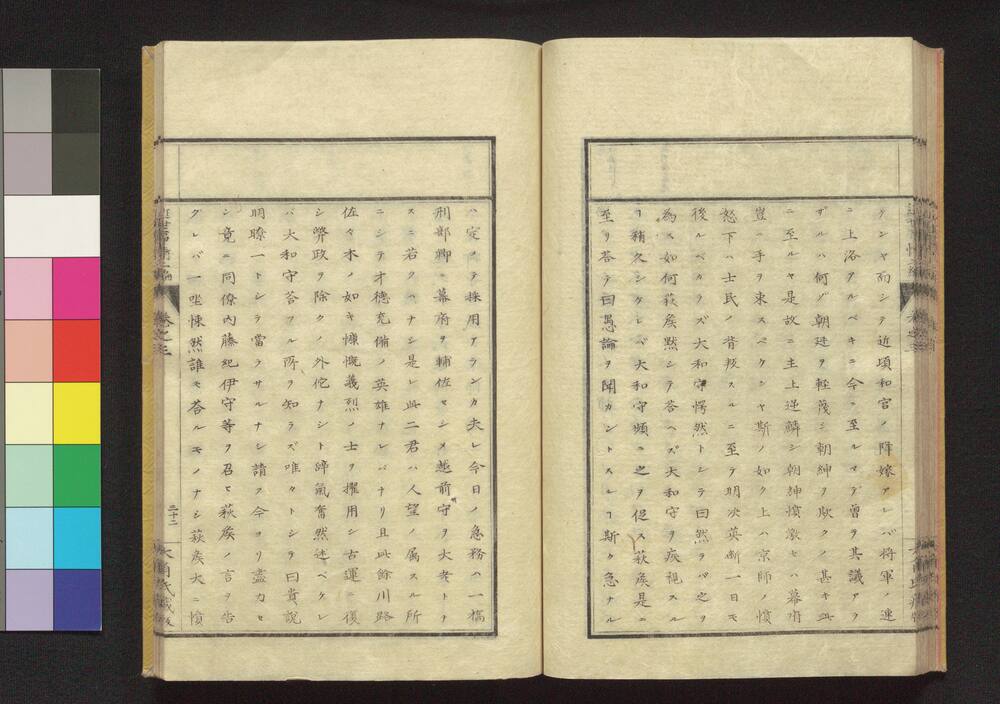 クンヤ而シテ近頃和宮ノ降嫁アレバ将軍ノ速
ニ上洛アルベキニ今ニ至ルマデ曾ヲ其議アヲ
ザルハ何ゾ朝廷ヲ軽蔑シ朝紳ヲ欺クノ甚キ此
ニ至ルヤ是故ニ主上逆鱗シ朝紳憤激セハ幕府
豈ニ手ヲ束スベクンヤ斯ノ如ク上ハ京師ノ憤
怒下ハ士民ノ背叛スルニ至ラ明决英断一日モ
後ルベカラズ大和守愕然トシラ曰然ラバ之ヲ
為ス如何萩矦黙シテ答ヘズ大和守ヲ疾視スル
ヿ稍久シケレバ大和守頻ニ之ヲ促ス萩矦是ニ
至リ答テ曰愚論ヲ聞カントスレヿ斯ク急ナル
ハ定メテ採用アランカ夫レ今日ノ急務ハ一橋
刑部卿ニ幕府ヲ輔佐セシメ越前守ヲ大老トヲ
スニ若クハナシ是レ此二君ハ人望ノ属スル所
ニシテ才徳充備ノ英雄ナレバナリ且此餘川路
佐々木ノ如キ慷慨義烈ノ士ヲ擢用シ古運ニ復
シ弊政ヲ除クノ外佗ナシト諦氣奮然述ベケレ
バ大和守答フル所ヲ知ラズ唯々トシラ曰貴説
明瞭一トシラ當ラサルナシ請フ今ヨリ盡力セ
ン竟ニ同僚内藤紀伊守等ヲ召セ萩矦ノ言ヲ告
グレバ一坐悚然誰モ答ルモノナシ萩矦大ニ憤
巻之三
二十二